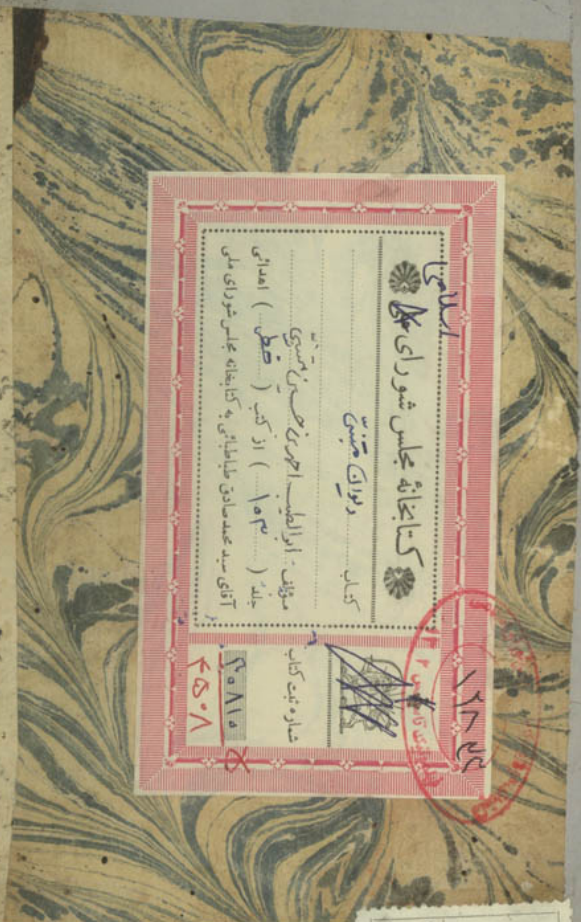 اسلامی
کتابخانهٔ مجلس شورای ملی
کتاب دیوان متنبی
مؤلف ابوالطیب احمد بن حسین متنبی
جلد ( ۱۰۳ ) از کتب ( خطی ) اهدائی
آقای سید محمد صادق طباطبائی به کتابخانهٔ مجلس شورای ملی
شماره ثبت کتاب
۴۰۸۱۵
۴۵۰۸